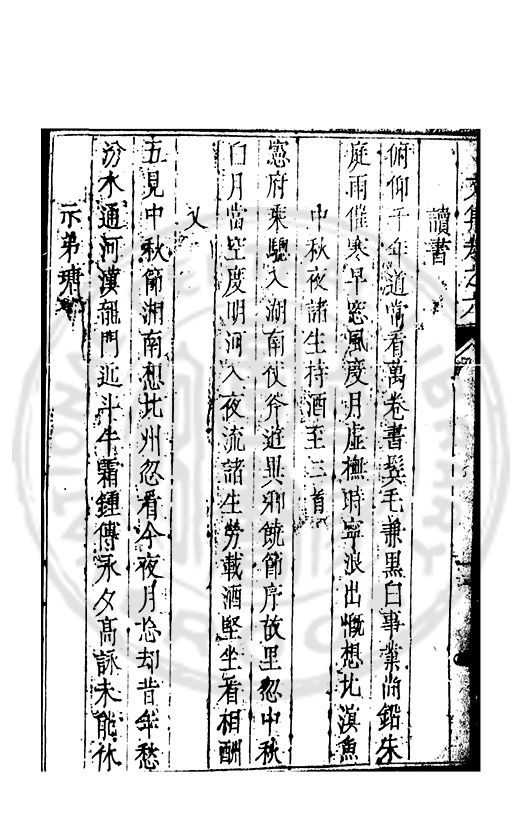 文集卷之六
讀書
俯仰千年道常看萬卷書鬂毛兼黒白事業尚鉛朱
庭雨催寒早窓風度月虛撫時寧浪出慨想比溟魚
中秋夜諸生持酒至二首
憲府乘驄入湖南仗斧遊異鄉饒節序故里忽中秋
白月當空度明河入夜流諸生勞載酒堅坐看相酬
又
五見中秋節湘南想北州忽看今夜月忩却昔年愁
汾水通河漢龍門近斗牛霜鍾傳永夕高詠未能休
示弟瑭